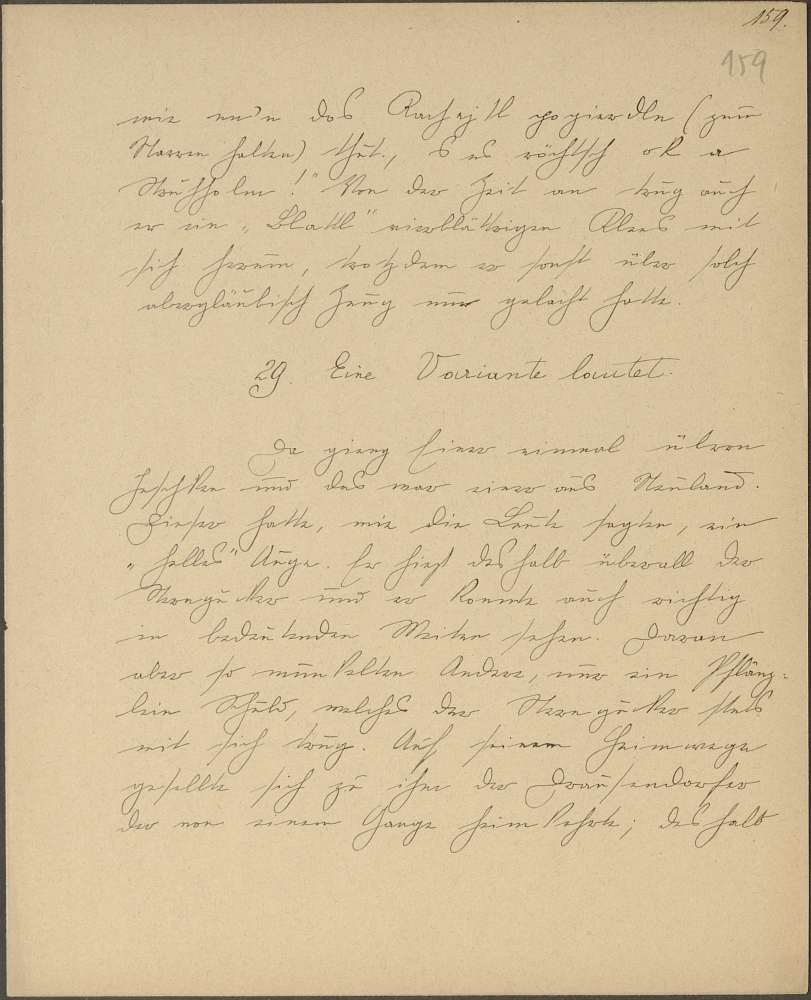 159.
159
wie en'n dos Rachejtl pogierdln (zum
Narren halten) thut, 's es röchtsch ok a
Strühholm!" Von der Zeit an trug auch
er ein „Blattl" vierblättrigen Klees mit
sich herum, trotzdem er sonst über solch
abergläubisch Zeug nur gelacht hatte.
29. Eine Variante lautet.
Da gieng Einer einmal übern
Jeschken und das war einer aus Neuland.
Dieser hatte, wie die Leute sagten, ein
„helles" Auge. Er hieß deshalb überall der
Sterngucker und er konnte auch richtig
in bedeutenden Weiten sehen. Daran
aber so munkelten Andere, nur ein Pflänz-
lein Schuld, welches der Sterngucker stets
mit sich trug. Auf seinem Heimwege
gesellte sich zu ihm der Drausendorfer
der von einem Gange heimkehrte; deshalb